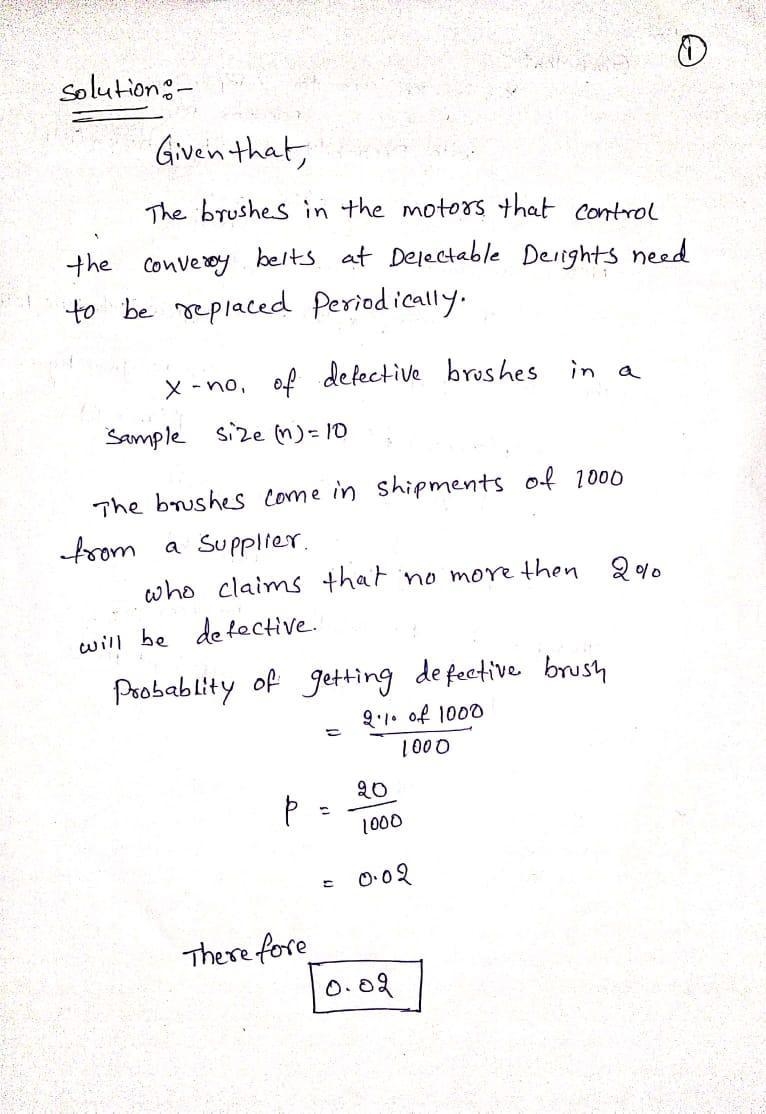 ①
Solution:-
Given that,
The brushes in the motors that control
the converoy belts at Delectable Delights need
to be replaced Periodically.
X - no. of defective brushes in a
Sample size (n) = 10
The brushes come in shipments of 1000
from a supplier.
who claims that no more then 2%
will be defective.
Probablity of getting defective brush
= 2% of 1000 / 1000
p = 20 / 1000
= 0.02
Therefore
0.02